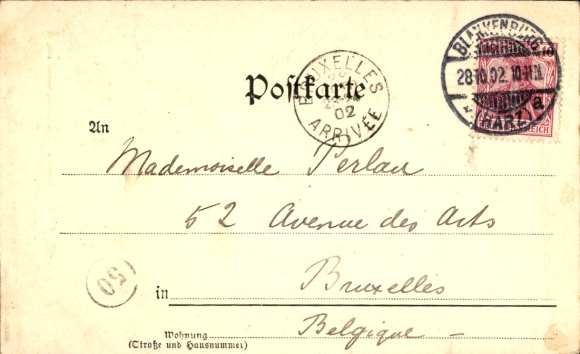 BLANKENBURG
28.10.02.10-11
a
* (HARZ)
10
REICH
BRUXELLES
02
ARRIVÉE
Postkarte
An
Mademoiselle Perlau
52 Avenue des Arts
50
in Bruxelles
Wohnung
(Straße und Hausnummer)
Belgique –